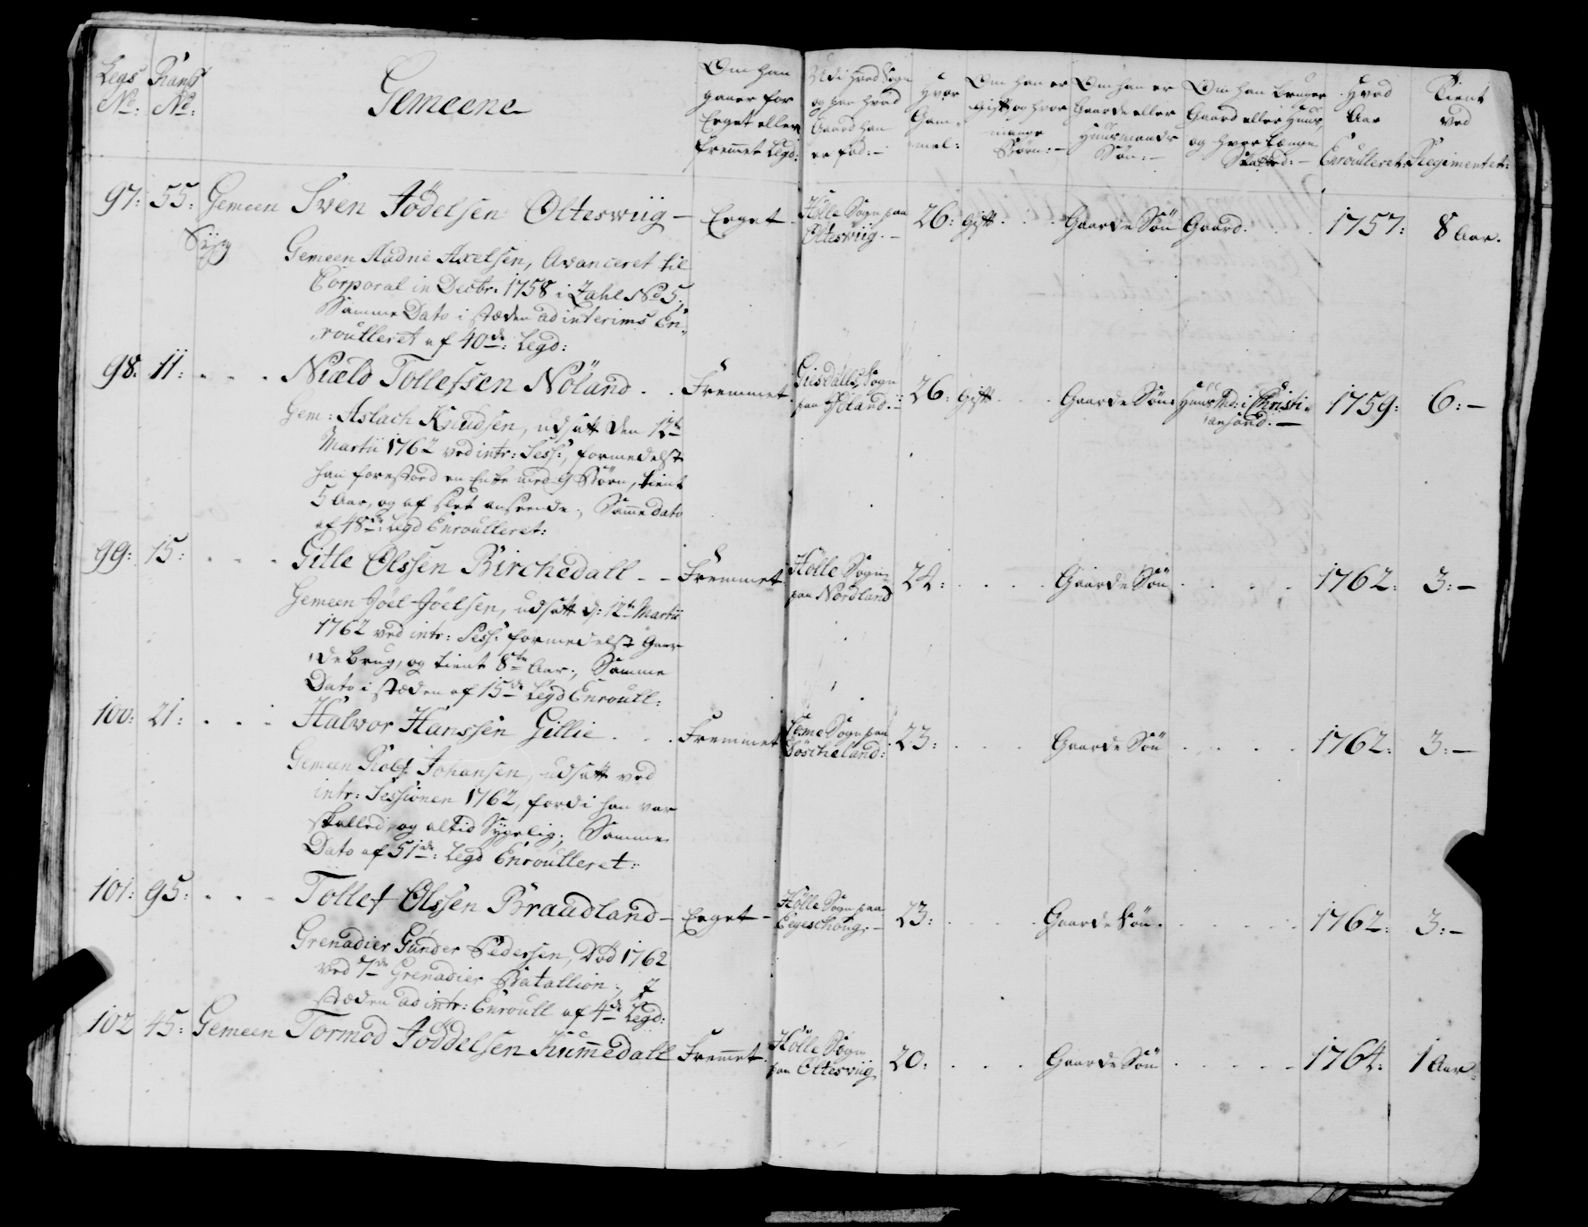 Legs No:
Rang No:
Gemeene
Om han gaaer for Eeget eller fremmet Legd:
Udi hvad Sogn og paa hvad Gaard han er fød:
Hvor Gammel:
Om han er gift og hvor mange Børn:
Om han er Gaarde eller Huusmands Søn:
Om han bruger Gaard eller Huus, og hvor Længe
Hvad Aar Enroulleret:
Tient ved Regimentet:
97: 55: Gemeen Sven Jödelsen Olteswiig — Eeget - Hölle Sogn paa Olteswiig. 26: gift . . . Gaarde Sön Gaard. . . . 1757: 8 Aar.
Syg
Gemeen Aadne Axelsen, Avanceret til
Corporal in Decbr: 1758 i Zahl No 5;
Samme Dato i stæden ad interims En-
roulleret af 40de: Legd:
98: 11: . . . Niæld Tollefssen Nöland . . Fremmet Giesdalls Sogn paa 26: gift . . . Gaarde Sön Huus Md: i Christiansand. — 1759: 6: —
Gem: Aslach Knudsen, udsatt den 12te
Martii 1762 ved intr: Sess:, formedelst
han forestoed en Enke med 9 Börn, tient
5 Aar, og af slet anseende; Samme dato
af 48de: Legd Enroulleret:
99: 15: . . . Gitle Olssen Birchedall - - Fremmet Hölle Sogn paa Nordland 24: . . . . Gaarde Sön . . . . 1762: 3: —
Gemeen Joel Joelsen, udsatt d: 12te Martii
1762 ved intr: Sess: formedelst Gaar-
debrug, og tient 8te Aar; Samme
Dato i stæden af 15de Legd Enroull:
100: 21: . . . Halvor Hanssen Gillie . . . Fremmet Sogn paa 23: . . . . Gaarde Sön . . . . 1762: 3: —
Gemeen Rolf Johansen, udsatt ved
intr: Sessionen 1762, fordi han var
skalled, og altid Sygelig; Samme
Dato af 51de: Legd Enroulleret:
101: 95: . . . Tollef Olssen Braudland — Eeget - Hölle Sogn paa Eegeschoug. 23: . . . . Gaarde Sön . . . . 1762: 3: —
Grenadier Gunder Pedersen, Död 1762
ved 7de Grenadier Batallion; I
stæden ad intr: Enroull af 4de Legd:
102 45: Gemeen Tormod Joddelsen Kummedall Fremmet Hölle Sogn paa Olteswiig 20: . . . . Gaarde Sön . . . . 1764: 1 Aar: